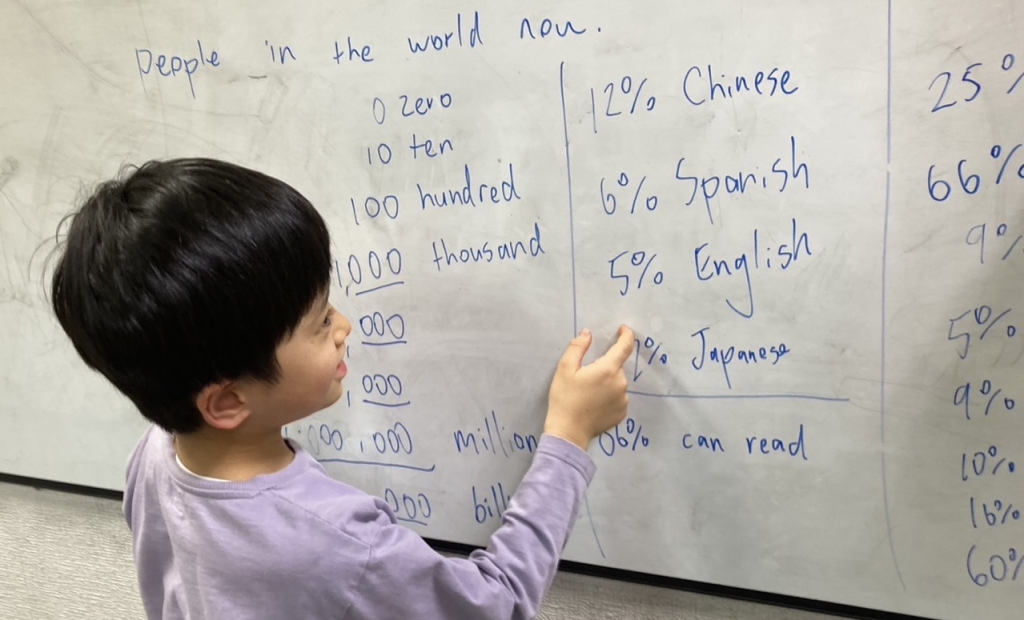 People in the world now.
0 zero
10 ten
100 hundred
1,000 thousand
,000
,000
,000,000 million
000
12% Chinese
6% Spanish
5% English
% Japanese
06% can read
25%
66%
9%
5%
9%
10%
16%
60%